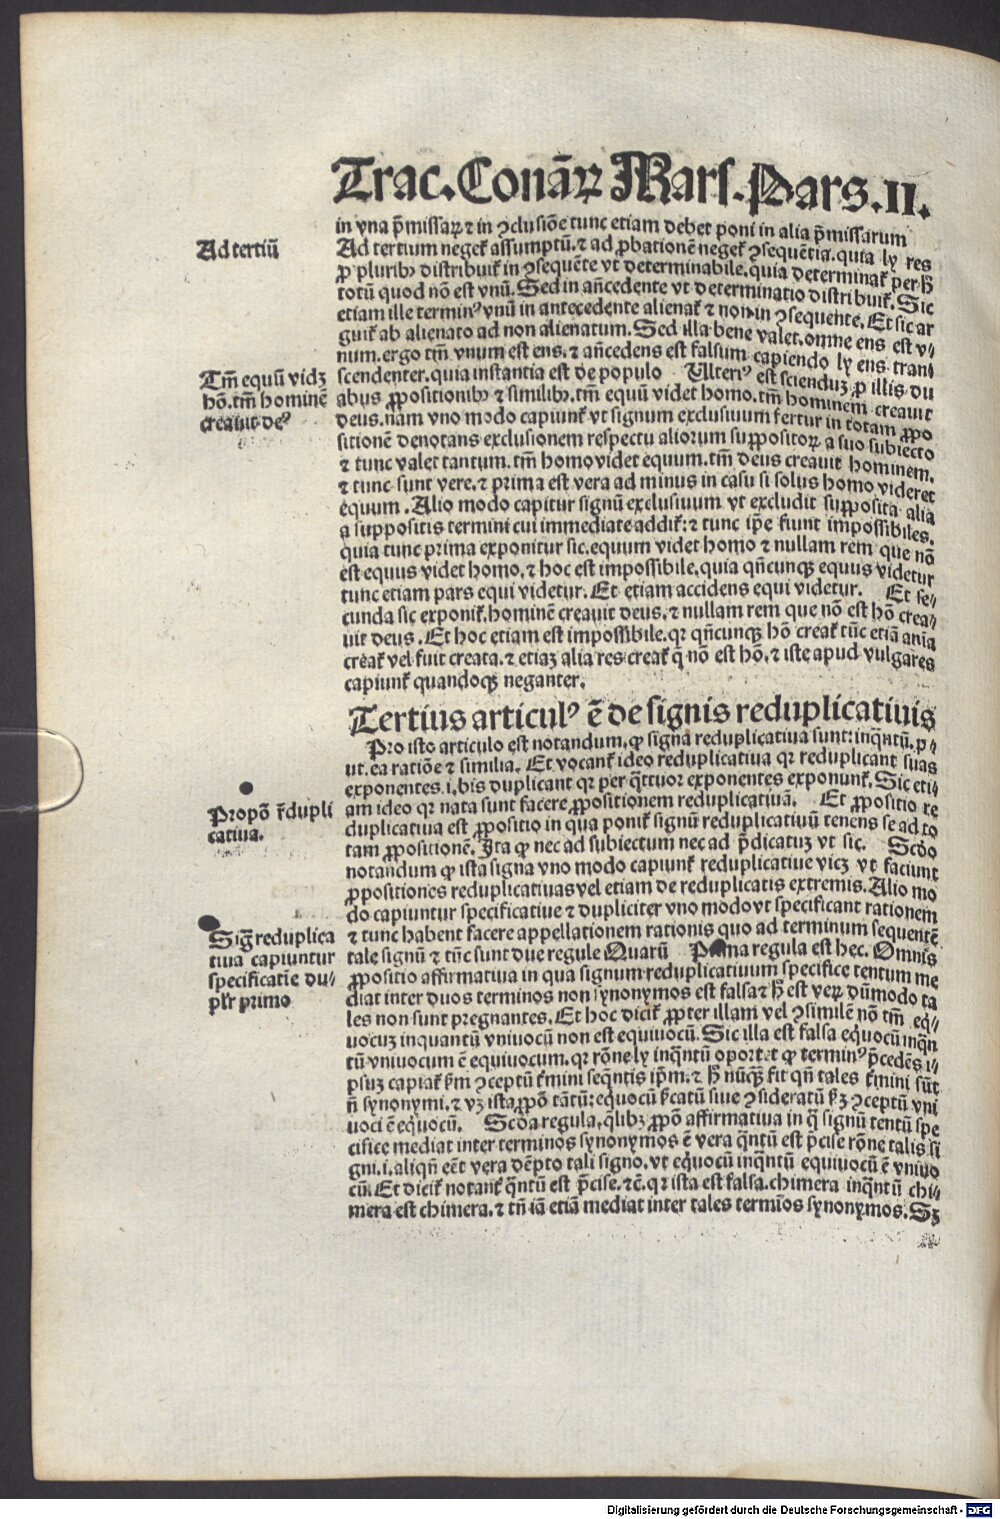 Trac. Conāꝝ Mars. Pars. II.
in vna p̄missaꝝ ⁊ in ꝯclusiōe tunc etiam debet poni in alia p̄missarum
Ad tertiū
Ad tertium neget᷑ assumptū. ⁊ ad ꝓbationē neget᷑ ꝯsequētia. quia ly res
ꝓ pluribꝫ distribuit᷑ in ꝯsequēte vt determinabile. quia determinat᷑ per hͦ
totū quod nō est vnū. Sed in añcedente vt determinatio distribuit᷑. Sic
etiam ille terminꝰ vnū in antecedente alienat᷑ ⁊ non in ꝯsequente. Et sic ar
guit᷑ ab alienato ad non alienatum. Sed illa bene valet. omne ens est v⸗
num. ergo tm̄ vnum est ens. ⁊ añcedens est falsum capiendo ly ens tran⸗
Tm̄ equū vidꝫ
hō. tm̄ hominē
creauit deꝰ
scendenter. quia instantia est de populo Ulteriꝰ est scienduꝫ ꝓ illis du
abus ꝓpositionibꝫ ⁊ similibꝫ. tm̄ equū videt homo. tm̄ hominem creauit
deus. nam vno modo capiunt᷑ vt signum exclusiuum fertur in totam ꝓpo
sitionē denotans exclusionem respectu aliorum suppositoꝝ a suo subiecto
⁊ tunc valet tantum. tm̄ homo videt equum. tm̄ deus creauit hominem.
⁊ tunc sunt vere. ⁊ prima est vera ad minus in casu si solus homo videret
equum. Alio modo capitur signū exclusiuum vt excludit supposita alia
a suppositis termini cui immediate addit᷑: ⁊ tunc ip̄e fiunt impossibiles.
quia tunc prima exponitur sic. equum videt homo ⁊ nullam rem que nō
est equus videt homo. ⁊ hoc est impossibile. quia qñcunqꝫ equus videtur
tunc etiam pars equi videtur. Et etiam accidens equi videtur. Et se⸗
cunda sic exponit᷑. hominē creauit deus. ⁊ nullam rem que nō est hō crea⸗
uit deus. Et hoc etiam est impossibile. qr qñcunqꝫ hō creat᷑ tūc etiā aīa
creat᷑ vel fuit creata. ⁊ etiaꝫ alia res creat᷑ q̄ nō est hō. ⁊ iste apud vulgares
capiunt᷑ quandoqꝫ neganter.
Tertius articulꝰ ē de signis reduplicatiuis
Pro isto articulo est notandum. ꝙ signa reduplicatiua sunt: inq̄ntū. p⸗
ut. ea ratiōe ⁊ similia. Et vocant᷑ ideo reduplicatiua qr reduplicant suas
exponentes. i. bis duplicant qr per q̄ttuor exponentes exponunt᷑. Sic eti⸗
Propō r̄dupli
catiua.
am ideo qr nata sunt facere ꝓpositionem reduplicatiuā. Et ꝓpositio re
duplicatiua est ꝓpositio in qua ponit᷑ signū reduplicatiuū tenens se ad to
tam ꝓpositionē. Ita ꝙ nec ad subiectum nec ad p̄dicatuꝫ vt sic. Scḋo
notandum ꝙ ista signa vno modo capiunt᷑ reduplicatiue vicꝫ vt faciunt
ꝓpositiones reduplicatiuas vel etiam de reduplicatis extremis. Alio mo
do capiuntur specificatiue ⁊ dupliciter vno modo vt specificant rationem
Sigꝫ reduplica
tiua capiuntur
specificatīe du⸗
plr̄ primo
⁊ tunc habent facere appellationem rationis quo ad terminum sequentē
tale signū ⁊ tūc sunt due regule Quarū Prima regula est hec. Omnis
ꝓpositio affirmatiua in qua signum reduplicatiuum specifice tentum me
diat inter duos terminos non synonymos est falsa ⁊ hͦ est veꝝ dūmodo ta
les non sunt pregnantes. Et hoc dicit᷑ ꝓpter illam vel ꝯsimilē nō tm̄ eq̇⸗
uocuꝫ inquantū vniuocū non est equiuocū. Sic illa est falsa eq̇uocū inq̄n
tū vniuocum ē equiuocum. qr rōne ly inq̄ntū oportet ꝙ terminꝰ p̄cedēs i⸗
psuꝫ capiat᷑ ẜm ꝯceptū t̄mini seq̄ntis ip̄m. ⁊ hͦ nūq̄ꝫ fit qñ tales t̄mini sūt
ñ synonymi. ⁊ vꝫ ista ꝓpō tātū: equocū ẜcatū siue ꝯsideratū ẜꝫ ꝯceptū vni
uoci ē eq̇uocū. Scḋa regula. q̄libꝫ ꝓpō affirmatiua in q̄ signū tentū spe
cifice mediat inter terminos synonymos ē vera q̄ntū est p̄cise rōne talis si
gni. i. aliqñ eēt vera dēpto tali signo. vt eq̇uocū inq̄ntū equiuocū ē vniuo
cū. Et dicit᷑ notant᷑ q̄ntū est p̄cise. ⁊c̄. qr ista est falsa. chimera inq̄ntū chi⸗
mera est chimera. ⁊ tñ iā etiā mediat inter tales termīos synonymos. Sꝫ
Digitalisierung gefördert durch die Deutsche Forschungsgemeinschaft - DFG